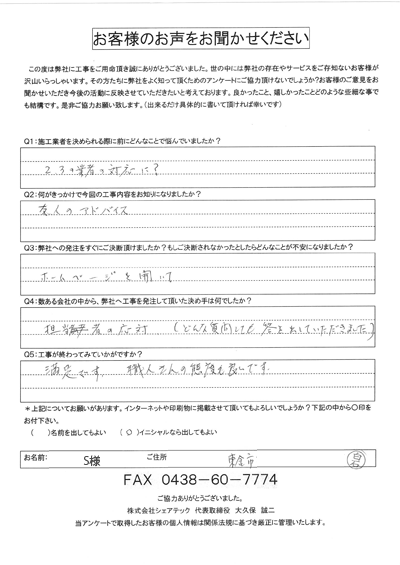 お客様のお声をお聞かせください
この度は弊社に工事をご用命頂き誠にありがとうございました。世の中には弊社の存在やサービスをご存知ないお客様が
沢山いらっしゃいます。その方たちに弊社をよく知って頂くためのアンケートにご協力頂けないでしょうか?お客様のご意見をお
聞かせいただき今後の活動に反映させていただきたいと考えております。良かったこと、嬉しかったことどのような些細な事で
も結構です。是非ご協力お願い致します。(出来るだけ具体的に書いて頂ければ幸いです)
Q1:施工業者を決められる際に前にどんなことで悩んでいましたか?
2.3の業者の対応に?
Q2:何がきっかけで今回の工事内容をお知りになりましたか?
友人のアドバイス
Q3:弊社への発注をすぐにご決断頂けましたか?もしご決断されなかったとしたらどんなことが不安になりましたか?
ホームページを開いて
Q4:数ある会社の中から、弊社へ工事を発注して頂いた決め手は何でしたか?
担当者の応対 (どんな質問にも答え出していただきました)
Q5:工事が終わってみていかがですか?
満足です。職人さんの態度も良いです。
*上記についてお願いがあります。インターネットや印刷物に掲載させて頂いてもよろしいでしょうか?下記の中から○印を
お付下さい。
( )名前を出してもよい (○)イニシャルなら出してもよい
お名前: S様 ご住所 東金市
FAX 0438-60-7774
ご協力ありがとうございました。
株式会社シェアテック 代表取締役 大久保 誠二
当アンケートで取得したお客様の個人情報は関係法規に基づき厳正に管理いたします。